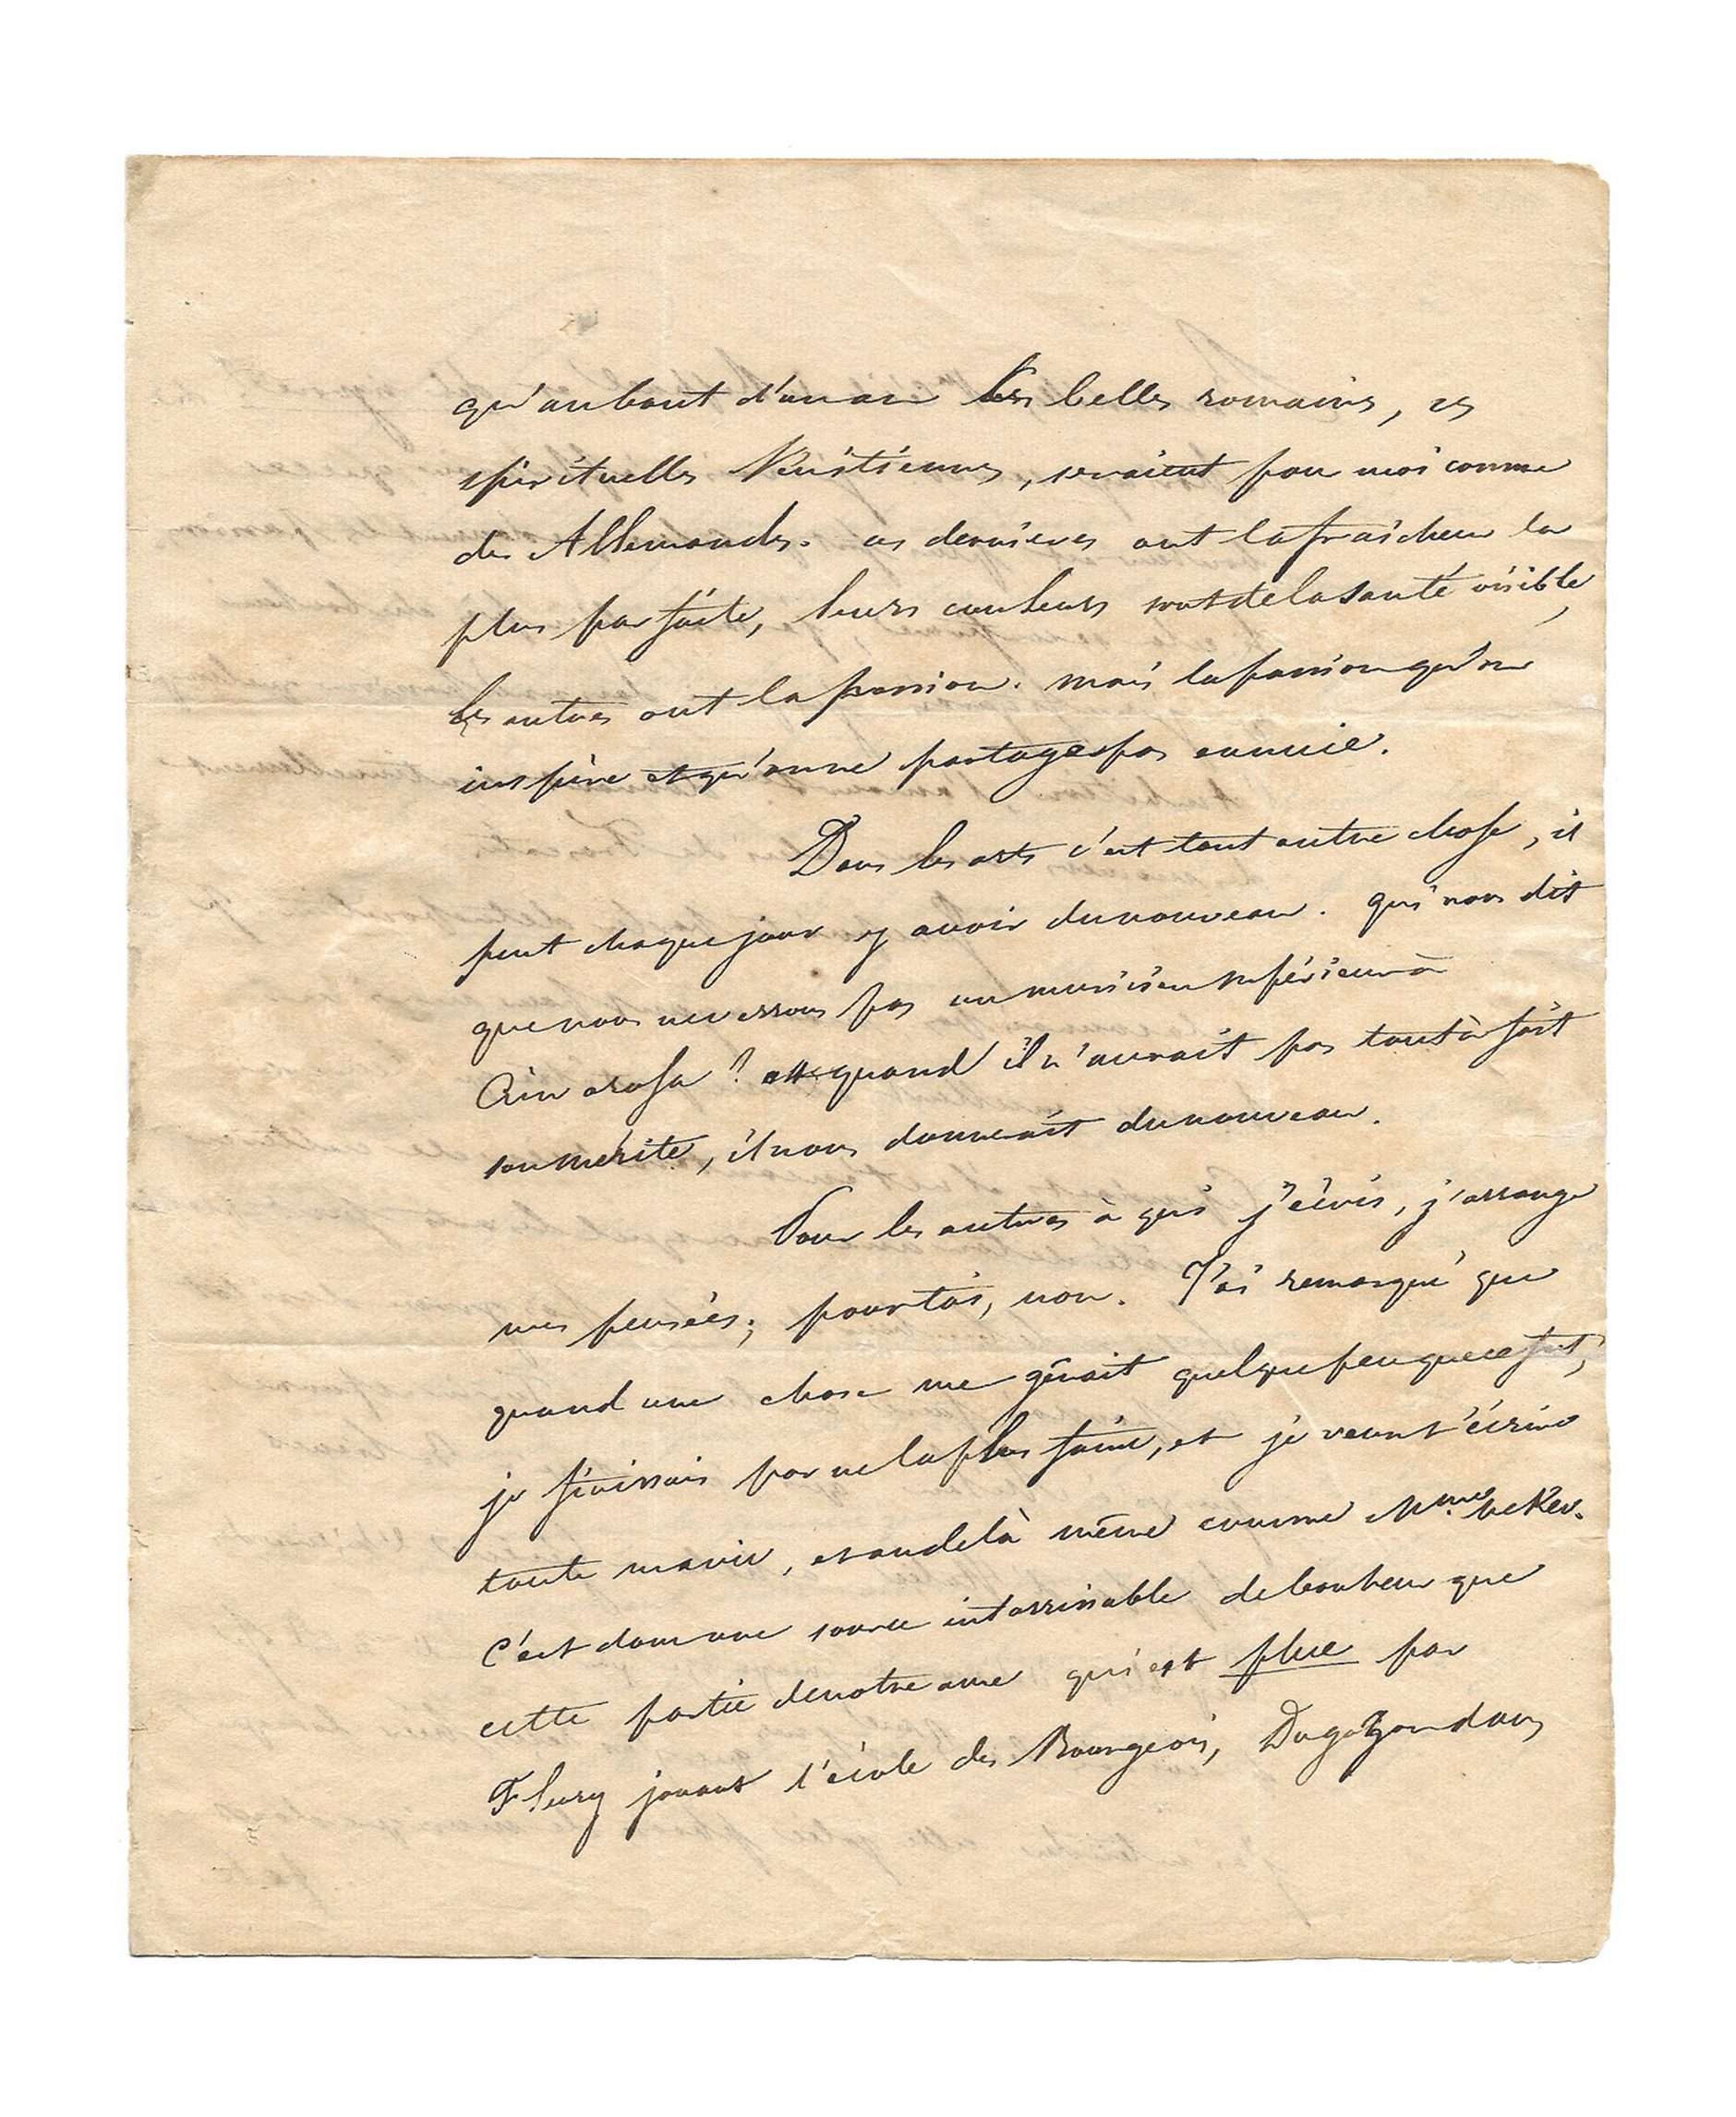 qu'au bout d'un an les belles romaines, ces
spirituelles Vénitiennes, seraient pour moi comme
des Allemandes. ces dernieres ont la fraîcheur la
plus parfaite, leurs couleurs sont de la santé visible,
les autres ont la passion. mais la passion qu'on
inspire et qu'on ne partage pas ennuie.
Dans les arts c'est tout autre chose, il
peut chaque jour y avoir du nouveau. qui nous dit
que nous ne verrons pas un musicien supérieur à
Cimarosa? quand il n'aurait pas tout à fait
son mérite, il nous donnerait du nouveau.
Pour les autres à qui j'écris, j'arrange
mes pensées; pour toi, non. J'ai remarqué que
quand une chose me gênait quelque peu que ce fut,
je finissais par ne la plus faire, et je veux t'écrire
toute ma vie, et au delà même comme Mme. Necker.
C'est donc une source intarissable de bonheur que
cette partie de notre ame qui est plue par
Fleury jouant l'école des Bourgeois, Dugazon dans